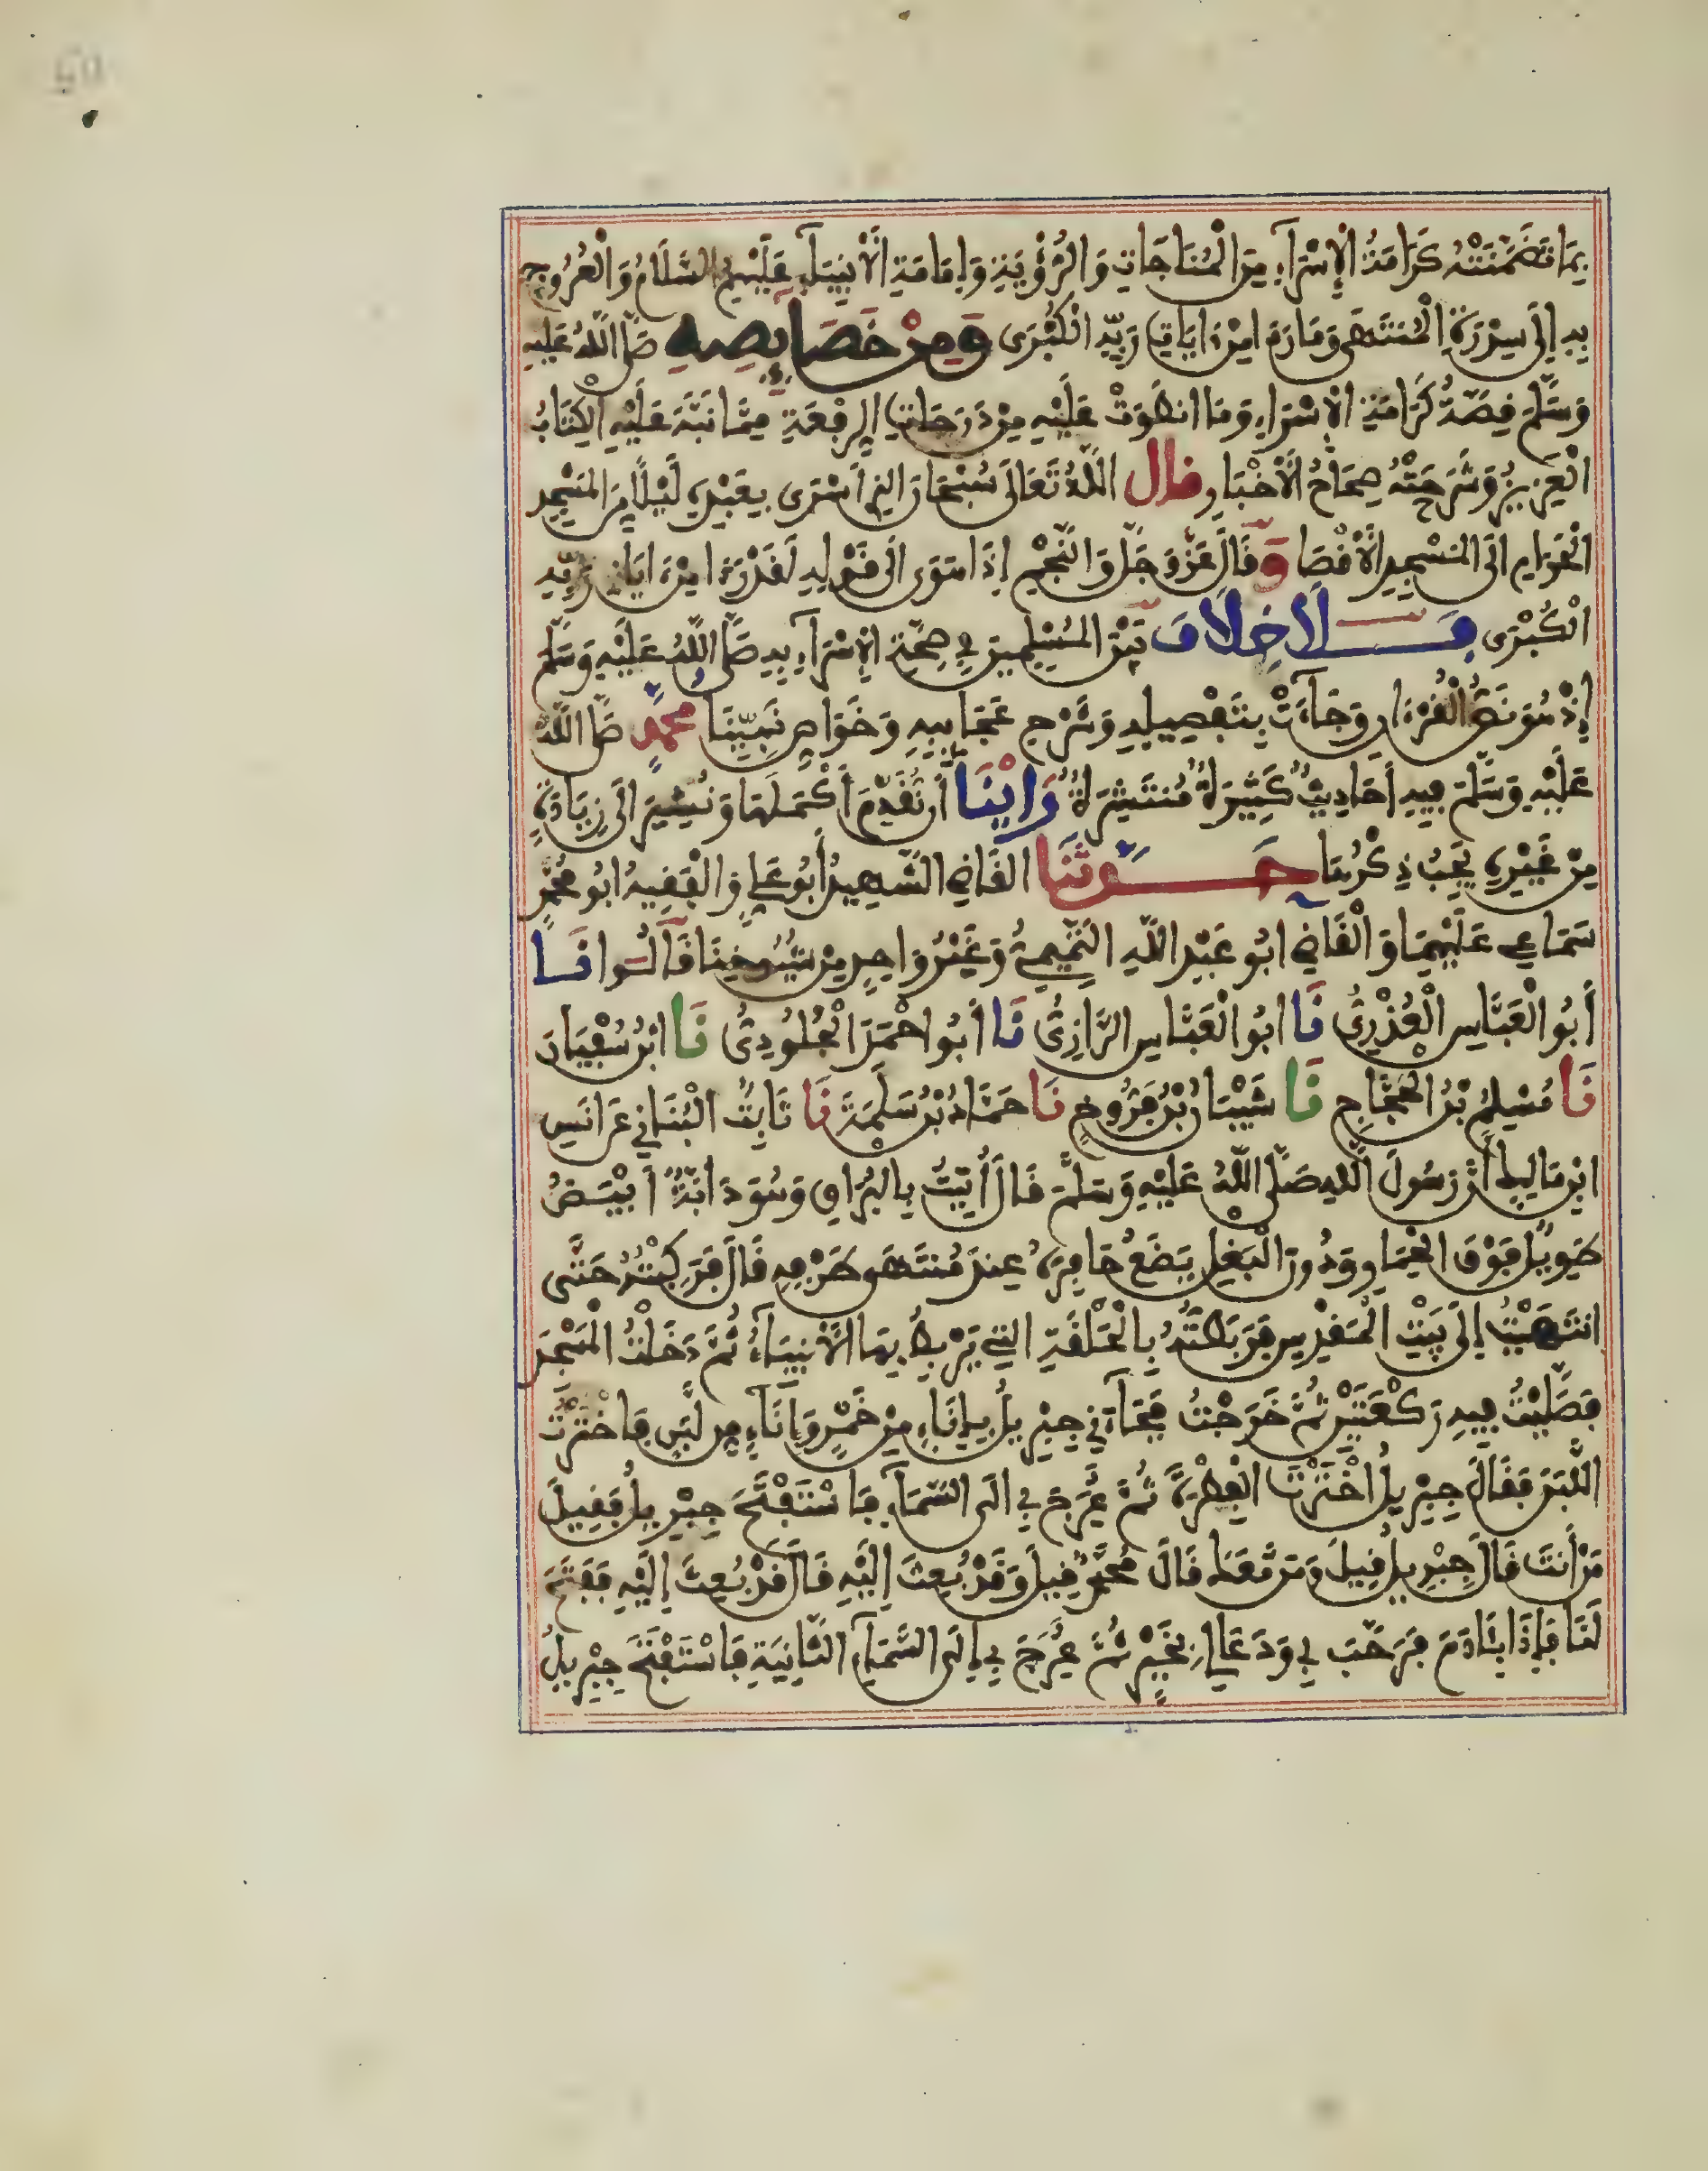 بِمَا تَضَمَّنَتْهُ كَرَامَةُ الْإِسْرَآءِ مِنَ الْمُنَاجَاتِ وَالرُّؤْيَةِ وَإِمَامَةِ الْأَنْبِيَآءِ عَلَيْهِمُ السَّلَامُ وَالْعُرُوجِ
بِهِ إِلَى سِدْرَةِ الْمُنتَهَى وَمَا رَءَا مِنْ ءَايَاتِ رَبِّهِ الْكُبْرَى وَمِنْ خَصَايِصِهِ صَلَّى اللَّهُ عَلَيْهِ
وَسَلَّمَ فِصَّةُ كَرَامَةِ الْإِسْرَاءِ وَمَا انطَوَتْ عَلَيْهِ مِنْ دَرَجَاتِ الرِّفْعَةِ مِمَّا نَبَّهَ عَلَيْهِ الْكِتَابُ
الْعَزِيزُ وَشَرَحَتْهُ صِحَاحُ الْأَخْبَارِ قال اللَّهُ تَعَالَى سُبْحَانَ الَّذِي أَسْرَى بِعَبْدِهِ لَيْلًا مِنَ الْمَسْجِدِ
الْحَرَامِ إِلَى الْمَسْجِدِ الْأَقْصَا وَقَالَ عَزَّ وَجَلَّ وَالنَّجْمِ إِذَا هَوَى إِلَى قَوْلِهِ لَقَدْ رَءَا مِنْ ءَايَاتِ رَبِّهِ
الْكُبْرَى فَلَا خِلَافَ بَيْنَ الْمُسْلِمِينَ فِي صِحَّةِ الْإِسْرَآءِ بِهِ صَلَّى اللَّهُ عَلَيْهِ وَسَلَّمَ
إِذْ هُوَ نَصُّ الْقُرْءَانِ وَجَآءَتْ بِتَفْصِيلِهِ وَشَرْحِ عَجَايِبِهِ وَخَوَاصِ نَبِيِّنَا مُحَمَّدٍ صَلَّى اللَّهُ
عَلَيْهِ وَسَلَّمَ فِيهِ أَحَادِيثُ كَثِيرَةٌ مُنتَشِرَةٌ رَأَيْنَا أَن نُقَدِّمَ أَكْمَلَهَا وَنُشِيرَ إِلَى زِيَادَةٍ
مِنْ غَيْرِهِ يَجِبُ ذِكْرُهَا حَدَّثَنَا الْقَاضِي الشَّهِيدُ أَبُو عَلِيٍّ وَالْفَقِيهُ أَبُو مُحَمَّدٍ
سَمَاعِي عَلَيْهِمَا وَالْقَاضِي أَبُو عَبْدِ اللَّهِ التَّمِيمِيُّ وَغَيْرُ وَاحِدٍ مِنْ شُيُوخِنَا قَالُوا نَا
أَبُو الْعَبَّاسِ الْعُذْرِيُّ نَا أَبُو الْعَبَّاسِ الرَّازِيُّ نَا أَبُو احْمَدَ الْجُلُودِيُّ نَا ابْنُ سُفْيَانَ
نَا مُسْلِمُ بْنُ الْحَجَّاجِ نَا شَيْبَانُ بْنُ فَرُّوخٍ نَا حَمَّادُ بْنُ سَلَمَةَ نَا ثَابِتٌ الْبُنَانِي عَنْ أَنَسِ
ابْنِ مَالِكٍ أَنَّ رَسُولَ اللَّهِ صَلَّى اللَّهُ عَلَيْهِ وَسَلَّمَ قَالَ أُتِيتُ بِالْبُرَاقِ وَهُوَ دَابَّةٌ أَبْيَضُ
طَوِيلٌ فَوْقَ الْحِمَارِ وَدُونَ الْبَغْلِ يَضَعُ حَافِرَهُ عِندَ مُنتَهَى طَرْفِهِ قَالَ فَرَكِبْتُهُ حَتَّى
انتَهَيْتُ إِلَى بَيْتِ الْمَقْدِسِ فَرَبَطْتُهُ بِالْحَلْقَةِ الَّتِي يَرْبِطُ بِهَا الْأَنْبِيَآءُ ثُمَّ دَخَلْتُ الْمَسْجِدَ
فَصَلَّيْتُ فِيهِ رَكْعَتَيْنِ ثُمَّ خَرَجْتُ فَجَآءَنِي جِبْرِيلُ بِإِنَاءٍ مِنْ خَمْرٍ وَإِنَآءٍ مِن لَبَنٍ فَاخْتَرْتُ
اللَّبَنَ فَقَالَ جِبْرِيلُ اخْتَرْتَ الْفِطْرَةَ ثُمَّ عُرِجَ بِي إِلَى السَّمَآءِ فَاسْتَفْتَحَ جِبْرِيلُ فَقِيلَ
مَنْ أَنتَ قَالَ جِبْرِيلُ قِيلَ وَمَن مَّعَكَ قَالَ مُحَمَّدٌ قِيلَ وَقَدْ بُعِثَ إِلَيْهِ قَالَ قَدْ بُعِثَ إِلَيْهِ فَفُتِحَ
لَنَا فَإِذَا بِئَادَمَ فَرَحَّبَ بِي وَدَعَا لِي بِخَيْرٍ ثُمَّ عُرِجَ بِي إِلَى السَّمَآءِ الثَّانِيَةِ فَاسْتَفْتَحَ جِبْرِيلُ